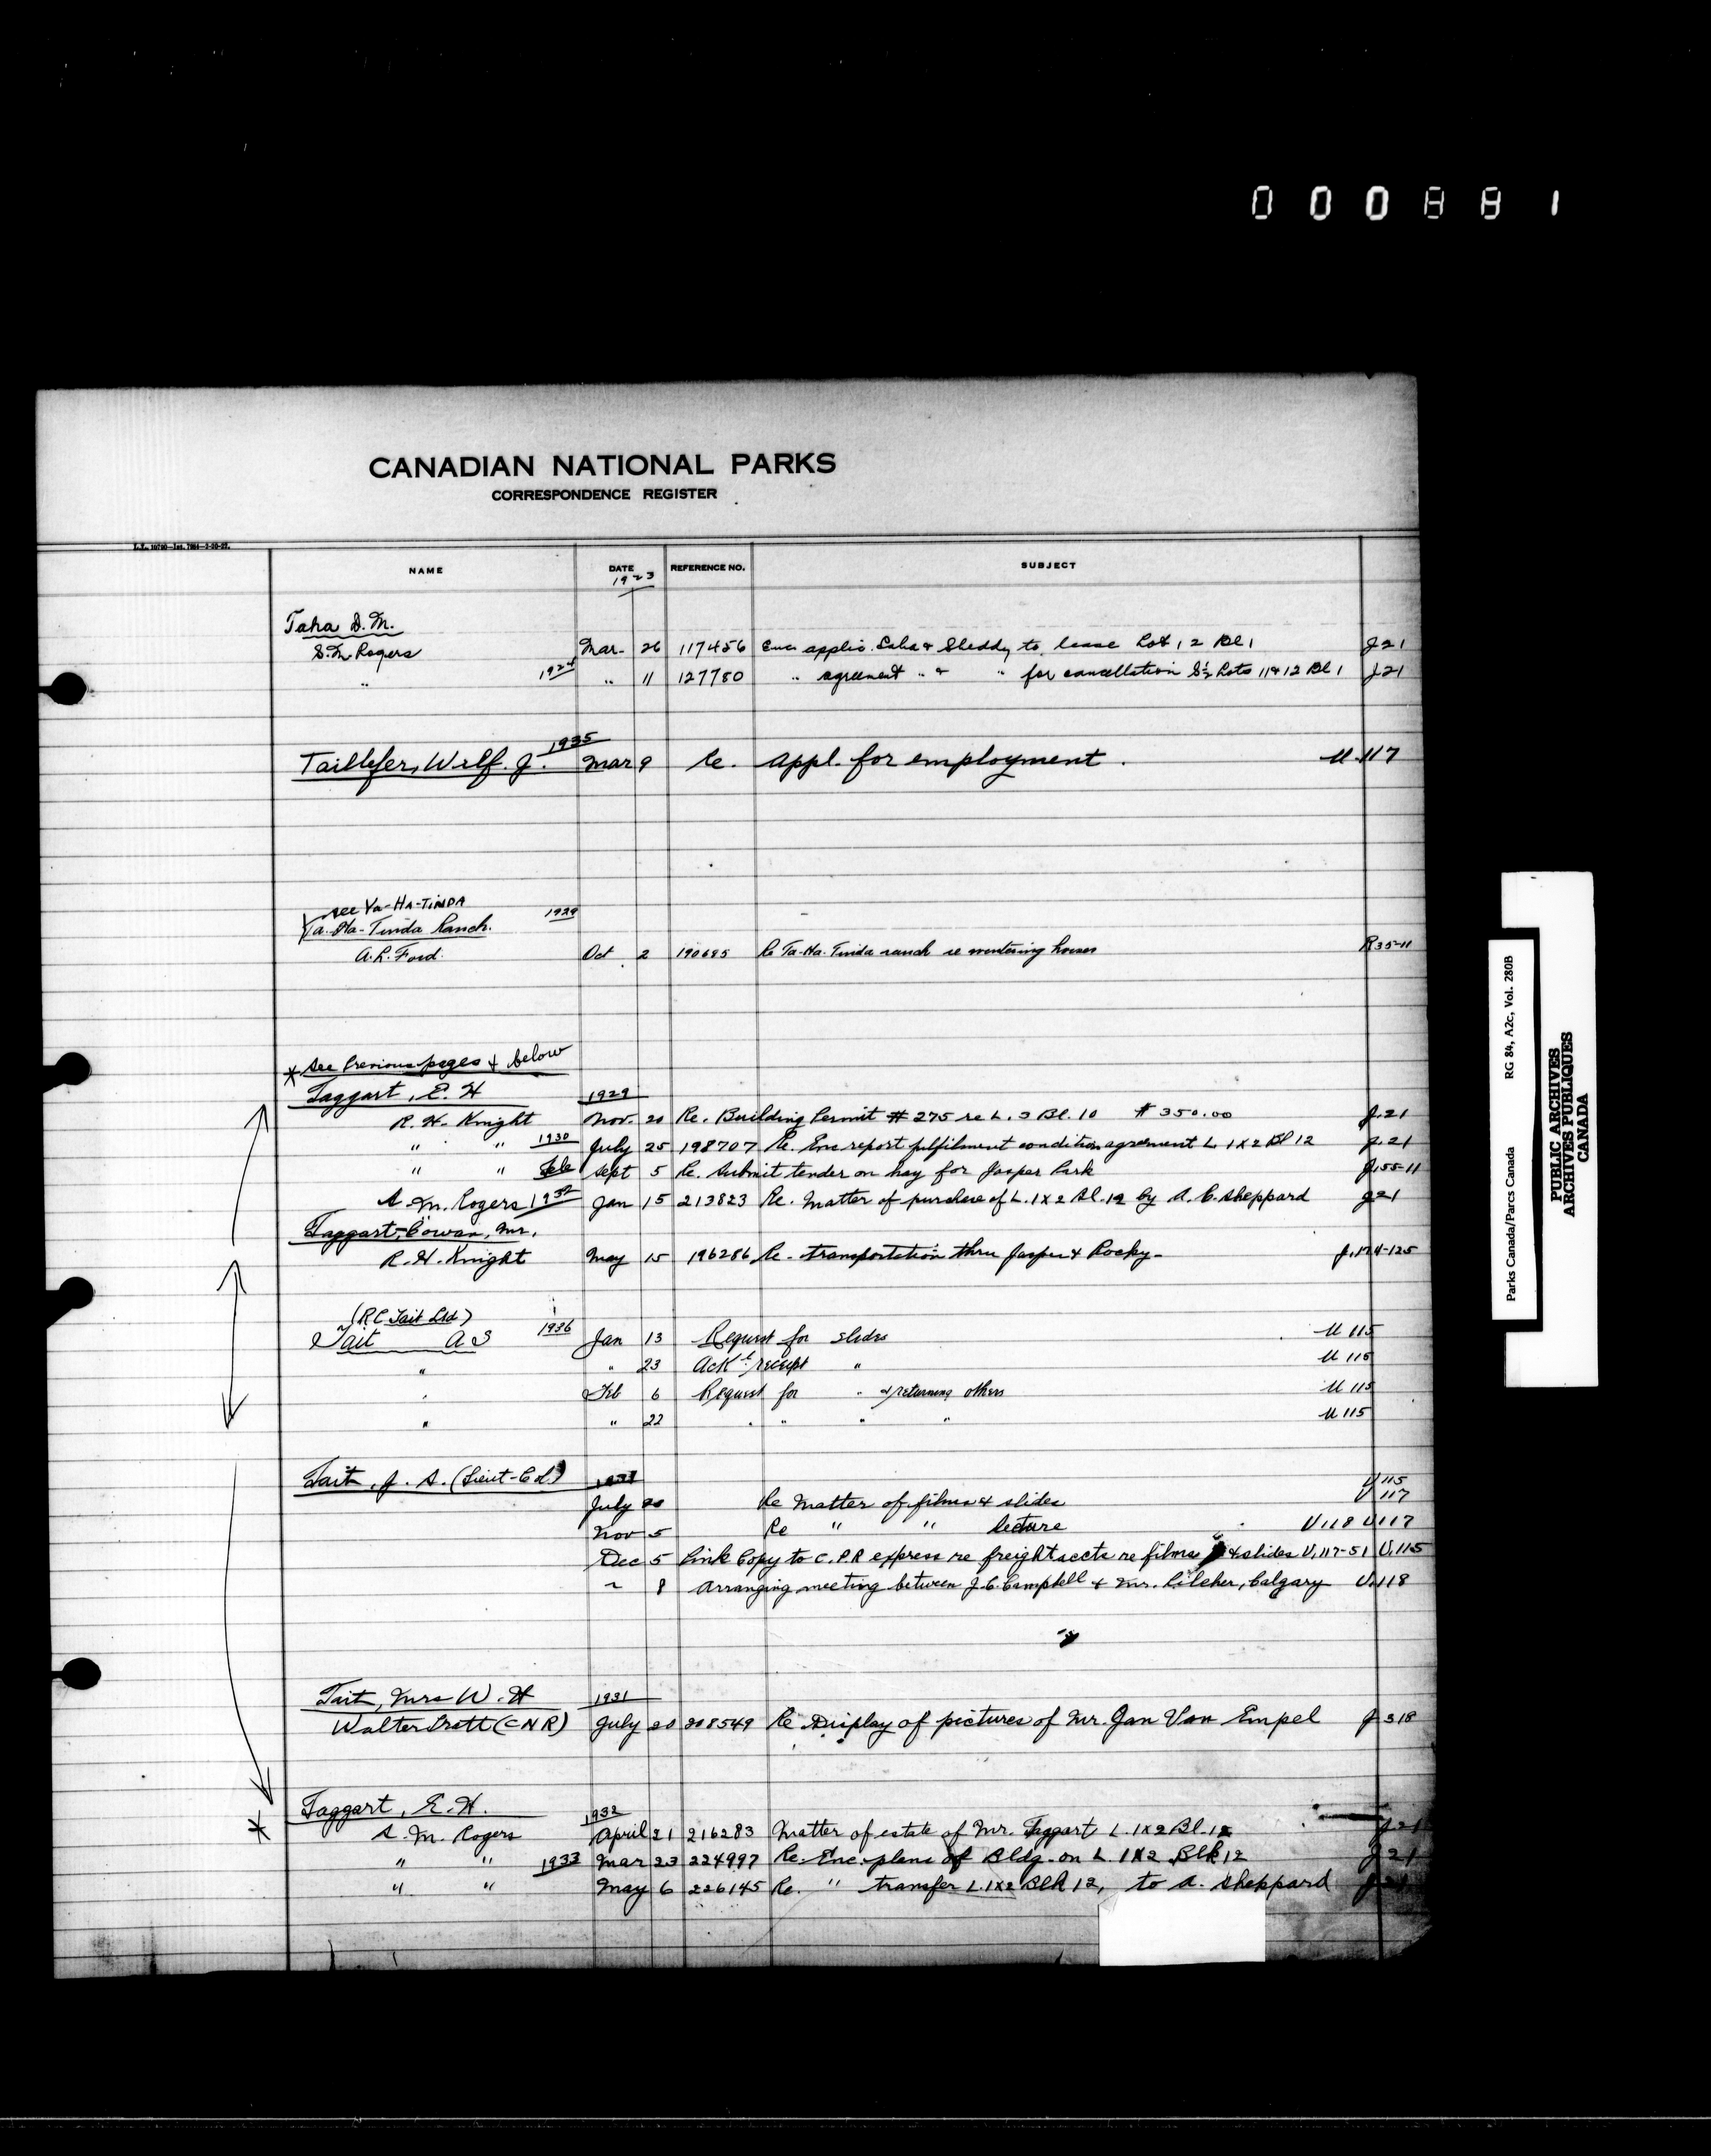 000881
CANADIAN NATIONAL PARKS
CORRESPONDENCE REGISTER
NAME DATE REFERENCE NO. SUBJECT
1923
Taha D.M.
S.M. Rogers Mar. 26 117456 Enc. applic. Saha & Sheddy to lease Lot 12 Bl 1 J 21
" 1924 " 11 127780 " agreement " & " for cancellation S½ Lots 11 & 12 Bl 1 J 21
1935
Taillefer, Wilf. J. Mar 9 Re. appl. for employment. U.117
see Ya-HA-TINDA
Ya-Ha-Tinda Ranch. 1929
A.L. Ford. Oct 2 190685 Re Ta-Ha-Tinda ranch re wintering horses R35-11
* See Previous pages & below
Taggart, E. H 1929
R. H. Knight Nov. 20 Re. Building Permit # 275 re L. 3 Bl. 10 $ 350.00 J.21
" " 1930 July 25 198707 Re. Enc report fulfilment condition agreement L 1 X 2 Bl 12 J.21
" " Sept 5 Re. Submit tender on hay for Jasper Park J.55-11
S. M. Rogers 1932 Jan 15 213823 Re. Matter of purchase of L. 1 X 2 Bl. 12 by A. C. Sheppard J21
Taggart-Cowan, Mr.
R. H. Knight May 15 196286 Re - transportation thru Jasper & Rocky - J.174-125
(RC Tait Ltd)
Tait A S 1936 Jan 13 Request for slides U 115
" " 23 Ack'd receipt " U 115
" Feb 6 Request for " & returning others U 115
" " 22 " " " " U 115
Tait, J. S. (Lieut-Col.) U 115
July 20 Re Matter of films & slides U 117
Nov 5 Re " " lecture U 118 U 117
Dec 5 Link Copy to C.P.R express re freight accts re films & slides U.117-51 U.115
~ 8 Arranging meeting between J. C. Campbell & Mr. Pilcher, Calgary U.118
Tait, Mrs W. H 1931
Walter Pratt (CNR) July 20 208549 Re Display of pictures of Mr. Jan Van Empel J 318
Taggart, E. H. 1932
* S. M. Rogers April 21 216283 Matter of estate of Mr. Taggart L. 1 X 2 Bl. 12 J 21
" " 1933 Mar 23 224997 Re. Enc. plans of Bldg. on L. 1 X 2 Blk 12 J 21
" " May 6 226145 Re. " transfer L. 1 X 2 Blk 12, to A. Sheppard J 21
Parks Canada/Parcs Canada RG 84, A2c, Vol. 280B
PUBLIC ARCHIVES
ARCHIVES PUBLIQUES
CANADA